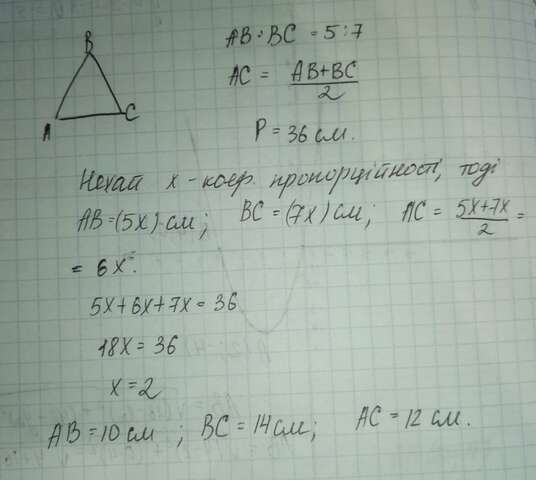 B
A
C
AB : BC = 5 : 7
AC = (AB+BC)/2
P = 36 см.
Нехай x - коеф. пропорційності, тоді
AB = (5x) см; BC = (7x) см; AC = (5x+7x)/2 =
= 6x.
5x+6x+7x = 36
18x = 36
x = 2
AB = 10 см ; BC = 14 см; AC = 12 см.